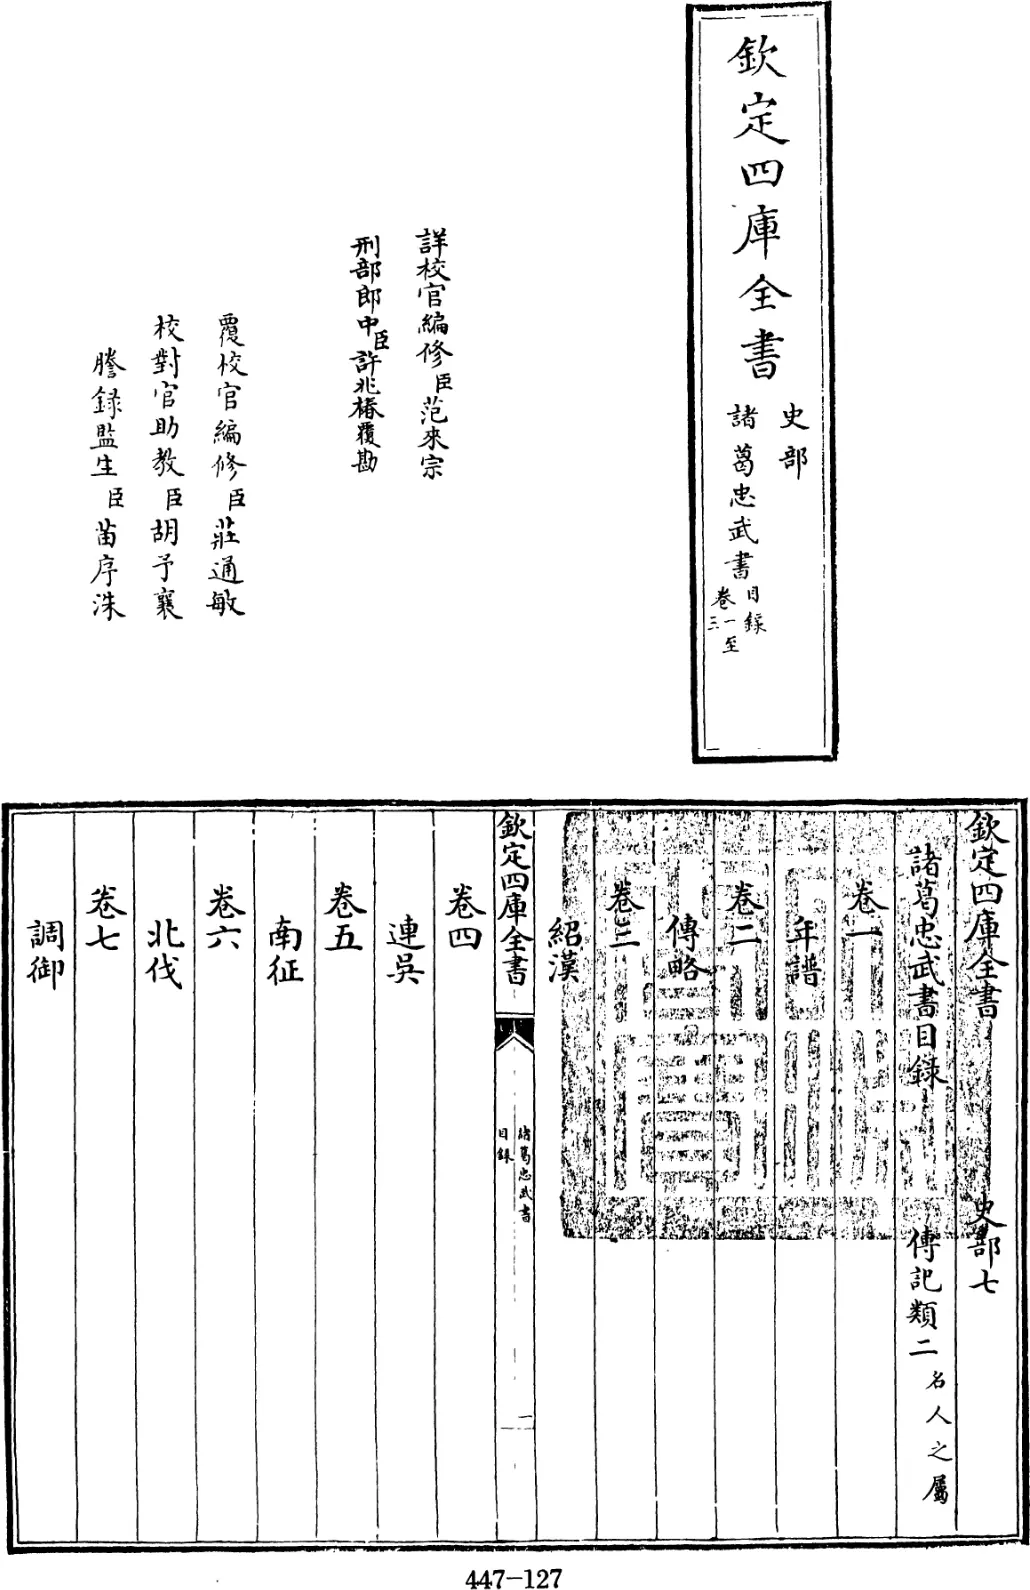 欽定四庫全書
史部
諸葛忠武書
目錄
卷一至
三
詳校官編修臣范來宗
刑部郎中臣許兆椿覆勘
覆校官編修臣莊通敏
校對官助教臣胡予襄
謄錄監生臣苗序洙
欽定四庫全書 史部七
諸葛忠武書目錄 傳記類二 名人之屬
卷一
年譜
卷二
傳略
卷三
紹漢
欽定四庫全書
諸葛忠武書
目錄
一
卷四
連吳
卷五
南征
卷六
北伐
卷七
調御
447-127